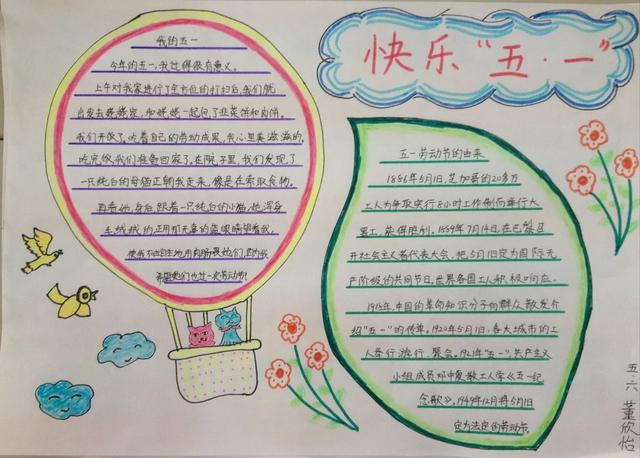 快乐“五·一”
我的五一
今年的五一,我过得很有意义。
上午对我家进行了全方位的打扫后,我们就
出发去姥姥家,和姥姥一起包了韭菜饼和肉饼。
我们开饭了,吃着自己的劳动成果,我心里美滋滋的。
吃完饭,我们准备回家了,在院子里,我们发现了
一只纯白的母猫正朝我走来,像是在索取食物。
再看她,身后跟着一只纯白的小猫,她浑身
毛绒绒的,正用那无辜的蓝眼睛望着我,
使我不由自主地用肉肠喂她们,因为我
希望她们也过一次劳动节!
五一劳动节的由来
1886年5月1日,芝加哥的20多万
工人为争取实行8小时工作制而举行大
罢工,获得胜利。1889年7月14日,在巴黎召
开社会主义者代表大会,把5月1日定为国际无
产阶级的共同节日,世界各国工人积极响应。
1918年,中国的革命知识分子向群众散发介
绍“五一”的传单。1920年5月1日,各大城市的工
人举行游行、聚会。1921年“五一”,共产主义
小组成员邓中夏教工人学《五一纪
念歌》,1949年12月将5月1日
定为法定的劳动节。
五·六 董欣怡